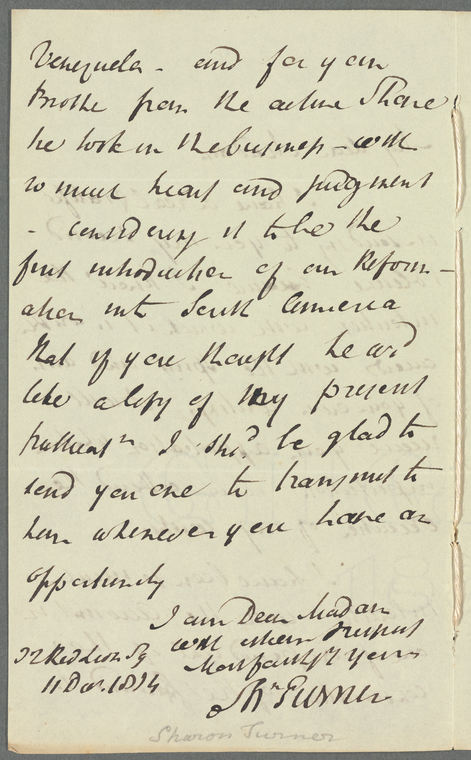 Venezuela - and for your
Brother from the active Share
he took in the business - with
so much heart and judgment
- considering it to be the
first introduction of our Reform-
ation into South America
that if you thought he wd
like a copy of my present
publicatn I shd be glad to
send you one to transmit to
him whenever you have an
opportunity
I am Dear Madam
with much respect
Most faithfly Yours
Shn Turner
32 Red Lion Sq
11 Dec. 1834
Sharon Turner